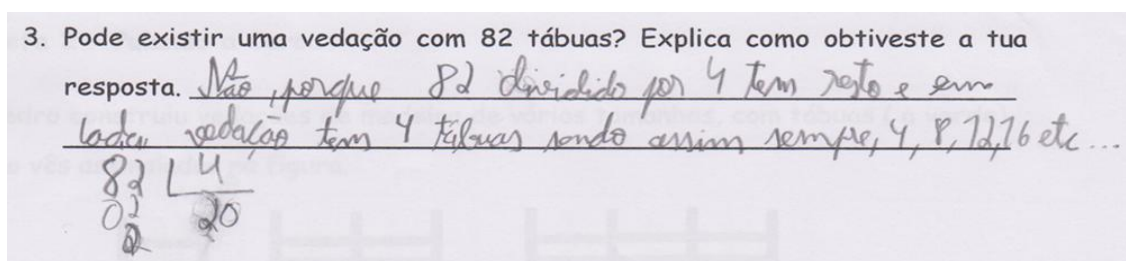 3. Pode existir uma vedação com 82 tábuas? Explica como obtiveste a tua
resposta. Não, porque 82 dividido por 4 tem resto e em
cada vedação têm 4 tábuas sendo assim sempre, 4, 8, 12, 16 etc...
82 4
02 20
2